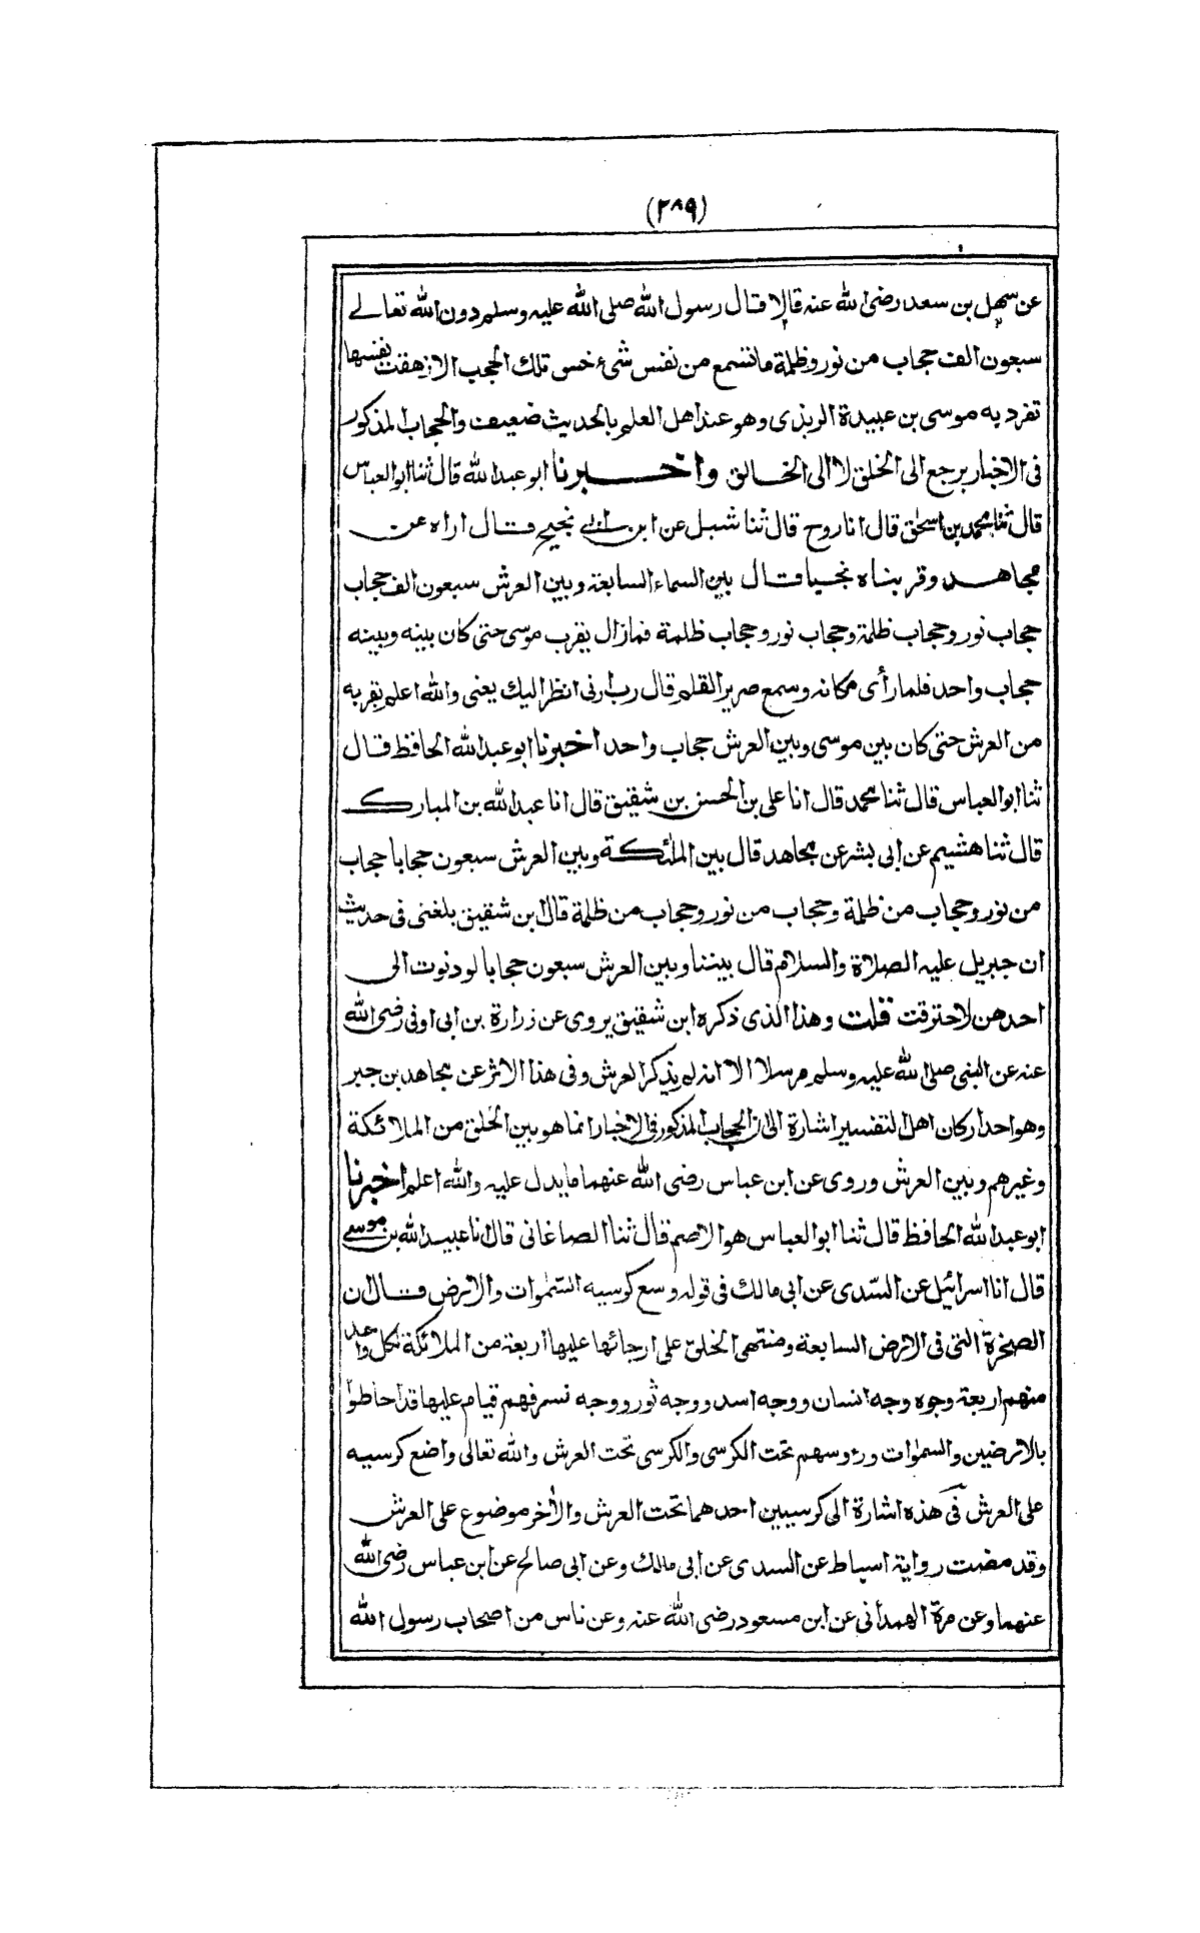 (٢٨٩)
عن سهل بن سعد رضى الله عنه قالا قال رسول الله صلى الله عليه وسلم دون الله تعالے
سبعون الف حجاب من نور وظلمة ما تسمع من نفس شئ حس تلك الحجب الا زهقت نفسها
تفرد به موسى بن عبيدة الربذى وهو عند اهل العلم بالحديث ضعيف والحجاب المذكور
فى الاخبار يرجع الى الخلق لا الى الخالق واخبرنا ابو عبد الله قال ثنا ابو العباس
قال ثنا محمد بن اسحق قال انا روح قال ثنا شبل عن ابن ابے نجيح قال اراه عن
مجاهد وقربناه نجيا قال بين السماء السابعة وبين العرش سبعون الف حجاب
حجاب نور وحجاب ظلمة وحجاب نور وحجاب ظلمة فما زال يقرب موسى حتى كان بينه وبينه
حجاب واحد فلما رأى مكانه وسمع صرير القلم قال رب ارنى انظر اليك يعنى والله اعلم يقربه
من العرش حتى كان بين موسى وبين العرش حجاب واحد اخبرنا ابو عبد الله الحافظ قال
ثنا ابو العباس قال ثنا محمد قال انا على بن الحسن بن شقيق قال انا عبد الله بن المبارك
قال ثنا هشيم عن ابى بشر عن مجاهد قال بين الملئكة وبين العرش سبعون حجابا حجاب
من نور وحجاب من ظلمة وحجاب من نور وحجاب من ظلمة قال ابن شقيق بلغنى فى حديث
ان جبريل عليه الصلاة والسلام قال بيننا وبين العرش سبعون حجابا لو دنوت الى
احدهن لاحترقت قلت وهذا الذى ذكره ابن شقيق يروى عن زرارة بن ابى اوفى رضى الله
عنه عن النبى صلى الله عليه وسلم مرسلا الا انه لم يذكر العرش وفى هذا الاثر عن مجاهد بن جبر
وهو احد اركان اهل التفسير اشارة الى ان الحجاب المذكور فى الاخبار انما هو بين الخلق من الملائكة
وغيرهم وبين العرش وروى عن ابن عباس رضى الله عنهما ما يدل عليه والله اعلم اخبرنا
ابو عبد الله الحافظ قال ثنا ابو العباس هو الاصم قال ثنا الصاغانى قال انا عبيد الله بن موسے
قال انا اسرائيل عن السّدى عن ابى مالك فى قوله وسع كرسيه السّمٰوات والارض قال ان
الصخرة التى فى الارض السابعة ومنتهى الخلق على ارجائها عليها اربعة من الملائكة لكل واحد
منهم اربعة وجوه وجه انسان ووجه اسد ووجه ثور ووجه نسر فهم قيام عليها قد احاطوا
بالارضين والسمٰوات ورءوسهم تحت الكرسى والكرسى تحت العرش والله تعالى واضع كرسيه
على العرش فى هذه اشارة الى كرسيين احدهما تحت العرش والأخر موضوع على العرش
وقد مضت رواية اسباط عن السدى عن ابى مالك وعن ابى صالح عن ابن عباس رضى الله
عنهما وعن مرة الهمدانى عن ابن مسعود رضى الله عنه وعن ناس من اصحاب رسول الله